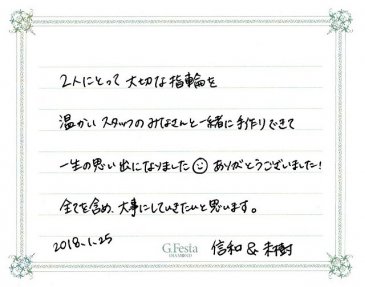 2人にとって大切な指輪を
温かいスタッフのみなさんと一緒に手作りできて
一生の思い出になりました☺ ありがとうございました！
全てを含め、大事にしていきたいと思います。
2018.1.25
G.Festa
DIAMOND
信和 & 未樹